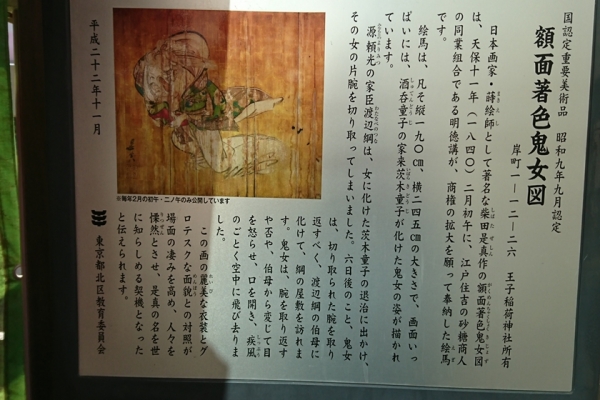 国認定重要美術品　昭和九年九月認定
額面著色鬼女図
岸町一ー一二ー二六　王子稲荷神社所有
日本画家・蒔絵師として著名な柴田是真作の額面著色鬼女図
は、天保十一年（一八四〇）二月初午に、江戸住吉の砂糖商人
の同業組合である明徳講が、商権の拡大を願って奉納した絵馬
です。
絵馬は、凡そ縦一九〇㎝、横二四五㎝の大きさで、画面いっ
ぱいには、酒呑童子の家来茨木童子が化けた鬼女の姿が描かれ
ています。
源頼光の家臣渡辺綱は、女に化けた茨木童子の退治に出かけ、
その女の片腕を切り取ってしまいました。六日後のこと、鬼女
は、切り取られた腕を取り
返すべく、渡辺綱の伯母に
化けて、綱の屋敷を訪れま
す。鬼女は、腕を取り返す
や否や、伯母から変じて目
を怒らせ、口を開き、疾風
のごとく空中に飛び去りま
した。
この画の麗美な衣裳とグ
ロテスクな面貌との対照が
場面の凄みを高め、人々を
慄然とさせ、是真の名を世
に知らしめる契機となった
と伝えられます。
※毎年2月の初午・二ノ午のみ公開しています
平成二十二年十一月
東京都北区教育委員会